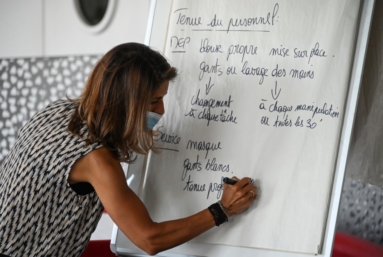 Tenue du personnel:
DEP blouse propre mise sur place.
gants ou lavage des mains
changement à chaque manipulation
à chaque tâche ou toutes les 30'
Service masque
gants blancs
tenue prop